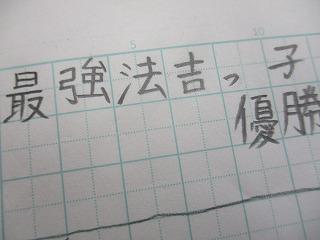 5 10
最強法吉っ子
優勝